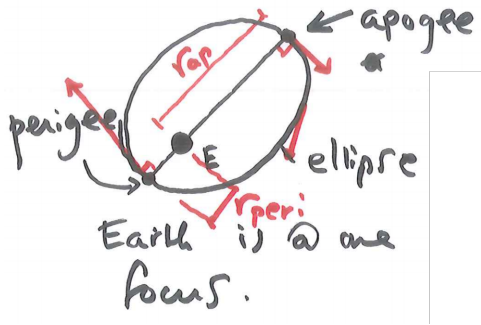 apogee
r ap
perigee
E
ellipse
r peri
Earth is @ one
focus.